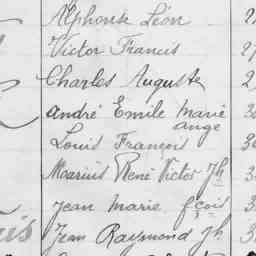 Alphonse Léon
Victor Francis
Charles Auguste
André Emile Marie
ange
Louis François
Marius René Victor Jh
Jean Marie fçois
Jean Raymond Jh